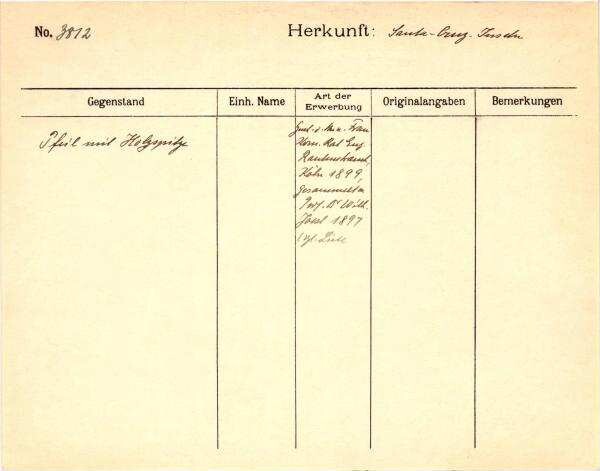 No. 3812
Herkunft: Santa-Cruz-Inseln
Gegenstand
Einh. Name
Art der
Erwerbung
Originalangaben
Bemerkungen
Pfeil mit Holzspitze
Frau
Kom. Rat Eug.
Rautenstrauch,
Köln 1899,
gesammelt v.
Prof. Dr Wilh.
Joest 1897